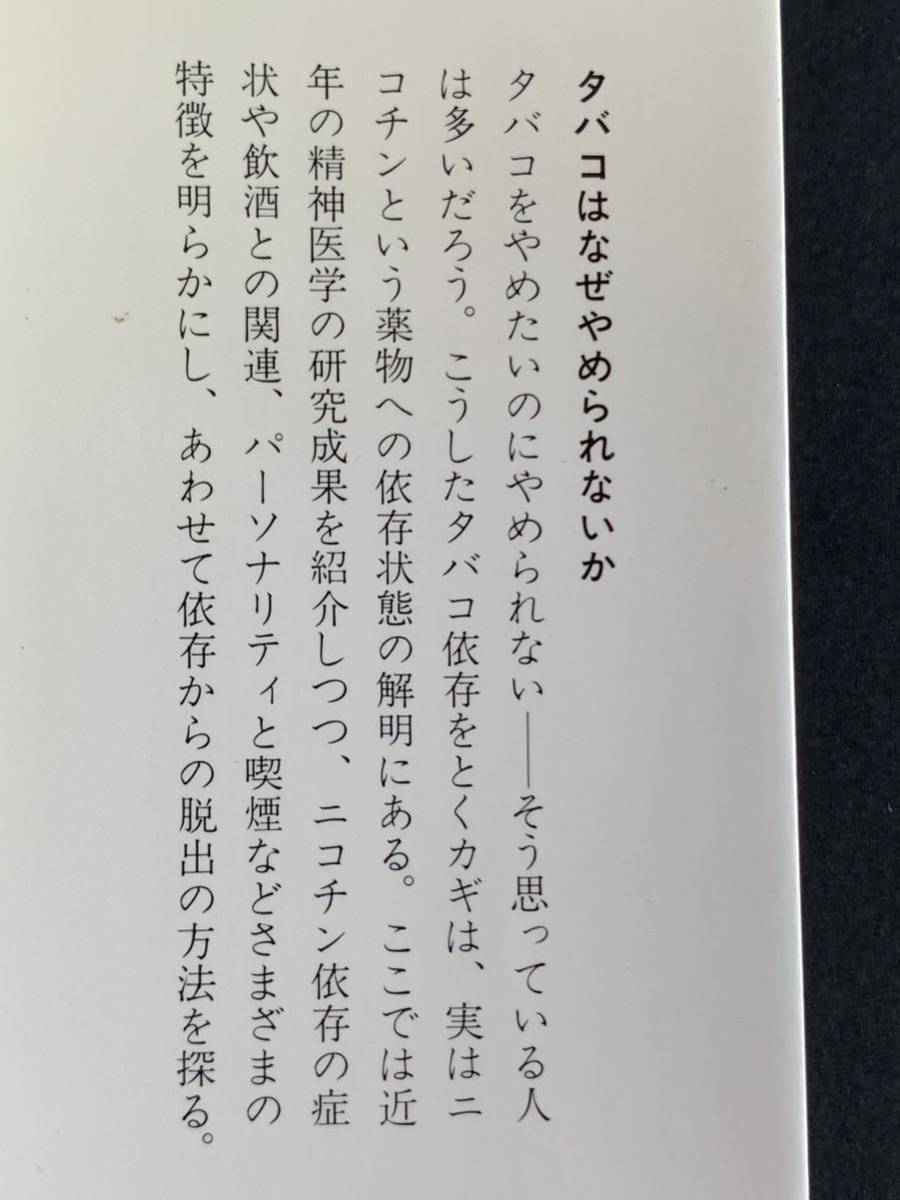 タバコはなぜやめられないか
タバコをやめたいのにやめられない――そう思っている人
は多いだろう。こうしたタバコ依存をとくカギは、実はニ
コチンという薬物への依存状態の解明にある。ここでは近
年の精神医学の研究成果を紹介しつつ、ニコチン依存の症
状や飲酒との関連、パーソナリティと喫煙などさまざまの
特徴を明らかにし、あわせて依存からの脱出の方法を探る。